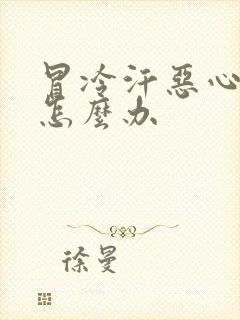 冒冷汗惡心
怎麼办
徐曼